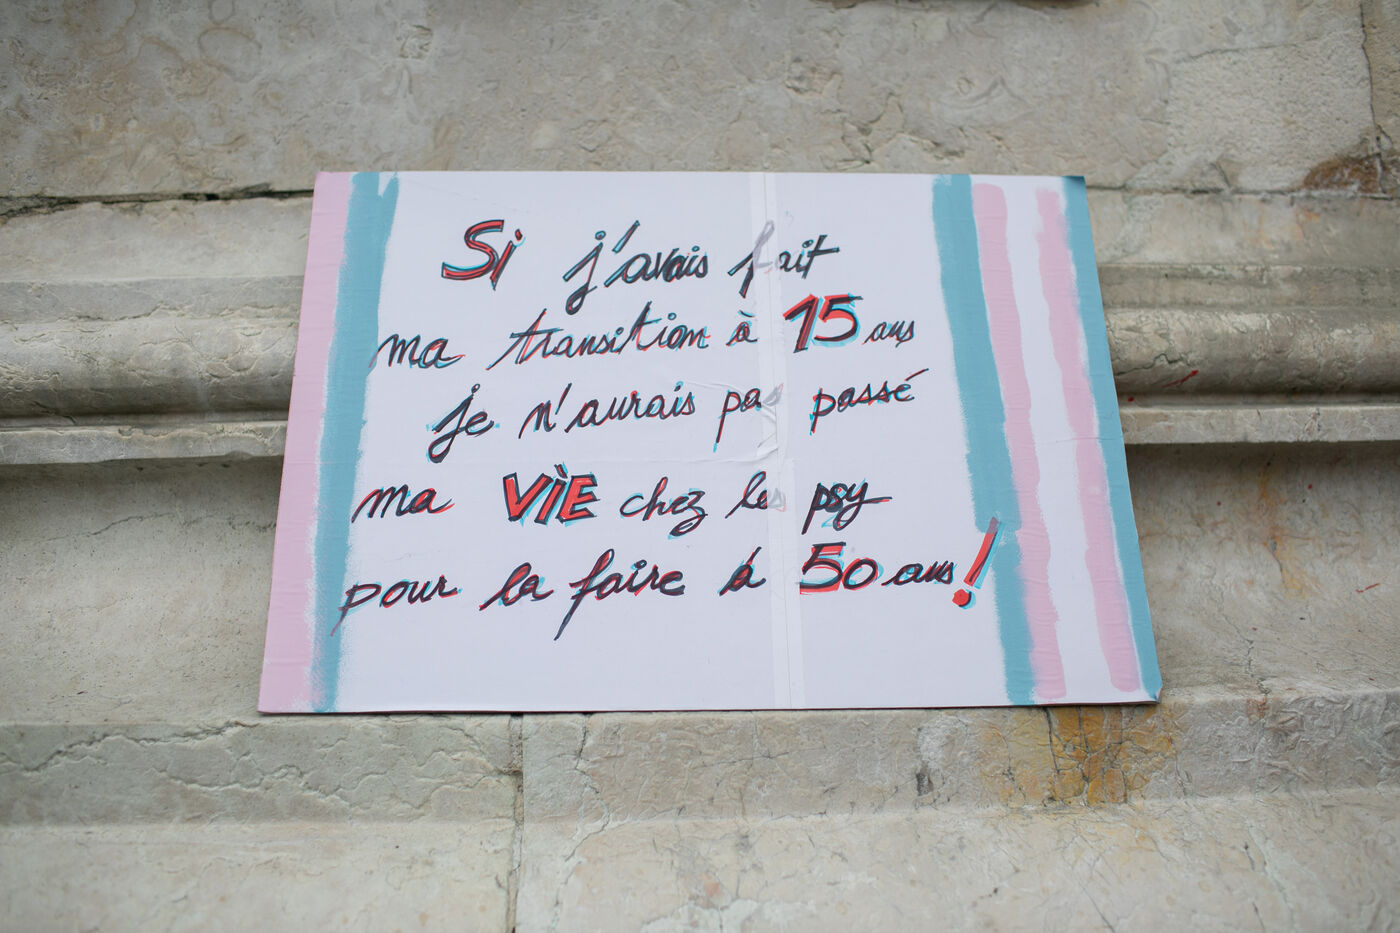 Si j'avais fait
ma transition à 15 ans
je n'aurais pas passé
ma VIE chez les psy
pour la faire à 50 ans!